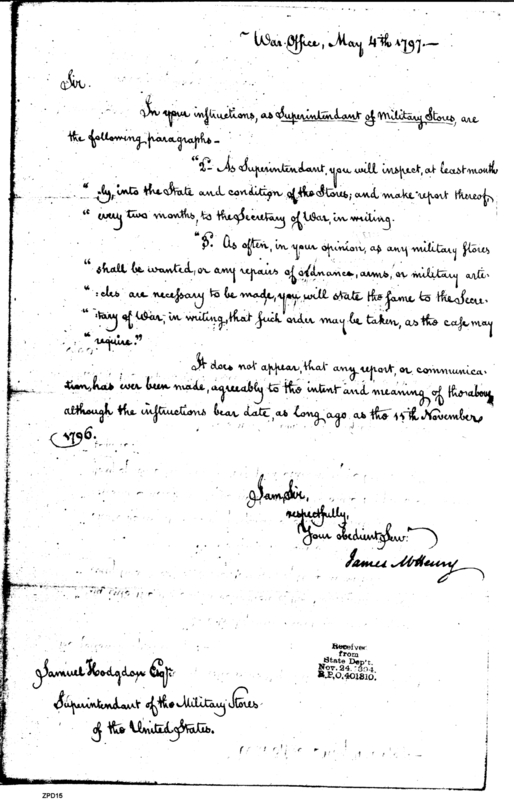 War Office, May 4th 1797.—
Sir.
In your instructions, as Superintendant of Military Stores, are
the following paragraphs—
"2. As Superintendant, you will inspect, at least month
" ly, into the State and condition of the Stores; and make report thereof
" every two months, to the Secretary of War, in writing.
"5. As often, in your opinion, as any military Stores
" shall be wanted, or any repairs of ordnance, arms, or military arti-
" :cles are necessary to be made, you will state the same to the Secre-
" tary of War, in writing, that such order may be taken, as the case may
" require."
It does not appear, that any report, or communica-
tion, has ever been made, agreeably to the intent and meaning of the above
although the instructions bear date, as long ago as the 11th November
1796.
I am, Sir,
respectfully,
Your obedient Serv.
James McHenry
Received
from
State Dep't.
Nov. 24,
R.P.O. 401810.
Samuel Hodgdon Esqr.
Superintendant of the Military Stores
of the United States.
ZPD15